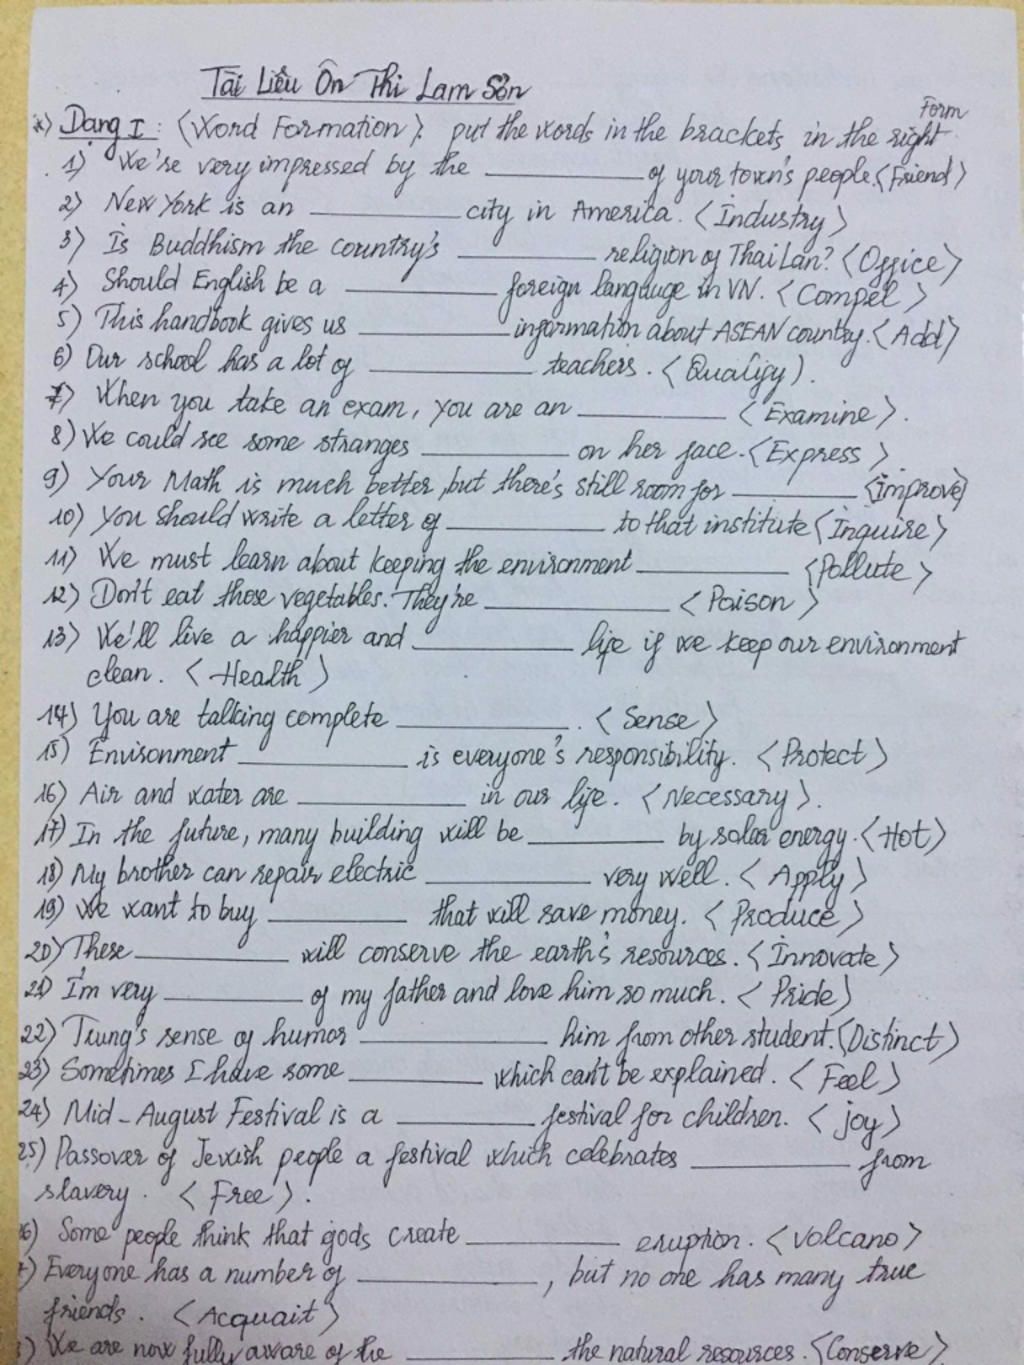 Tài Liệu Ôn Thi Lam Sơn
*) Dạng I : <Word Formation>; put the words in the brackets in the right Form
1) We're very impressed by the ______ of your town's people.<Friend>
2) New York is an ______ city in America. <Industry>
3) Is Buddhism the country's ______ religion of Thai Lan? <Office>
4) Should English be a ______ foreign langauge in VN. <Compel>
5) This handbook gives us ______ information about ASEAN country.<Add>
6) Our school has a lot of ______ teachers. <Qualify).
7) When you take an exam, you are an ______ <Examine>.
8) We could see some stranges ______ on her face.<Express>
9) Your Math is much better, but there's still room for ______ <improve>
10) You should write a letter of ______ to that institute <Inquire>
11) We must learn about keeping the environment ______ <Pollute>
12) Don't eat those vegetables. They're ______ <Poison>
13) We'll live a happier and ______ life if we keep our environment
clean. <Health>
14) You are talking complete ______. <Sense>
15) Environment ______ is everyone's responsibility. <Protect>
16) Air and water are ______ in our life. <Necessary>.
17) In the future, many building will be ______ by solar energy.<Hot>
18) My brother can repair electric ______ very well. <Apply>
19) We want to buy ______ that will save money. <Produce>
20) These ______ will conserve the earth's resources. <Innovate>
21) I'm very ______ of my father and love him so much. <Pride>
22) Trung's sense of humor ______ him from other student.(Distinct>
23) Sometimes I have some ______ which can't be explained. <Feel>
24) Mid-August Festival is a ______ festival for children. <joy>
25) Passover of Jewish people a festival which celebrates ______ from
slavery. <Free>.
6) Some people think that gods create ______ eruption. <Volcano>
) Everyone has a number of ______, but no one has many true
friends. <Acquait>
) We are now fully aware of the ______ the natural resources. <Conserve>